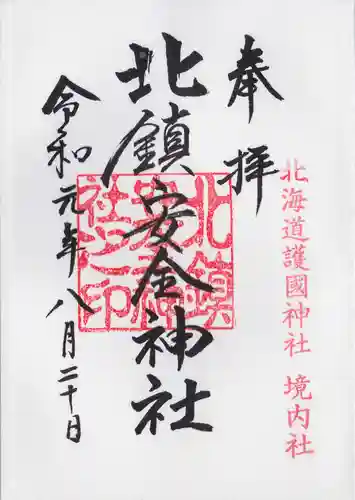 北海道護國神社 境内社
奉拝
北鎮安全神社
令和元年八月二十日